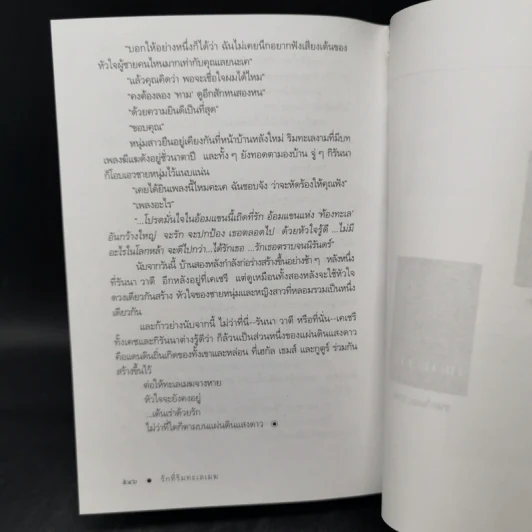 "บอกให้อย่างหนึ่งก็ได้ว่า ฉันไม่เคยนึกอยากฟังเสียงเต้นของ
หัวใจผู้ชายคนไหนมากเท่ากับคุณเลยนะเค"
"แล้วคุณคิดว่า พอจะเชื่อใจผมได้ไหม"
"คงต้องลอง 'ถาม' ดูอีกสักหนสองหน"
"ด้วยความยินดีเป็นที่สุด"
"ขอบคุณ"
หนุ่มสาวยืนอยู่เคียงกันที่หน้าบ้านหลังใหม่ ริมทะเลงามที่มีบท
เพลงพึมแฝงดังอยู่ชั่วนาตาปี และทั้ง ๆ ยังทอดตามองบ้าน จู่ ๆ กีรันนา
ก็โอบเอวชายหนุ่มไว้แนบแน่น
"เคยได้ยินเพลงนี้ไหมคะเค ฉันชอบจัง ว่าจะหัดร้องให้คุณฟัง"
"เพลงอะไร"
"...โปรดมั่นใจในอ้อมแขนนี้เถิดที่รัก อ้อมแขนแห่ง 'ท้องทะเล'
อันกว้างใหญ่ จะรัก จะปกป้อง เธอตลอดไป ด้วยหัวใจรู้ดี ...ไม่มี
อะไรในโลกหล้า จะดีไปกว่า...ได้รักเธอ ...รักเธอตราบจนนิรันดร์"
นับจากวันนี้ บ้านสองหลังกำลังก่อร่างสร้างขึ้นอย่างช้า ๆ หลังหนึ่ง
ที่รันนา วาดี อีกหลังอยู่ที่เคเชรี แต่ดูเหมือนทั้งสองหลังจะใช้หัวใจ
ดวงเดียวกันสร้าง หัวใจของชายหนุ่มและหญิงสาวที่หลอมรวมเป็นหนึ่ง
เดียวกัน
และก้าวย่างนับจากนี้ ไม่ว่าที่นี่--รันนา วาดี หรือที่นั่น--เคเชรี
ทั้งเคชและกีรันนาต่างรู้ดีว่า ก็ล้วนเป็นส่วนหนึ่งของแผ่นดินแสงดาว
คือแดนดินถิ่นเกิดของทั้งเขาและหล่อน ที่เฮกัล เชมส์ และกูตูร์ ร่วมกัน
สร้างขึ้นไว้
ต่อให้ทะเลเมฆจางหาย
หัวใจจะยังคงอยู่
...เต้นเร่าด้วยรัก
ไม่ว่าที่ใดก็ตามบนแผ่นดินแสงดาว
๕๔๖ ● รักที่ริมทะเลเมฆ